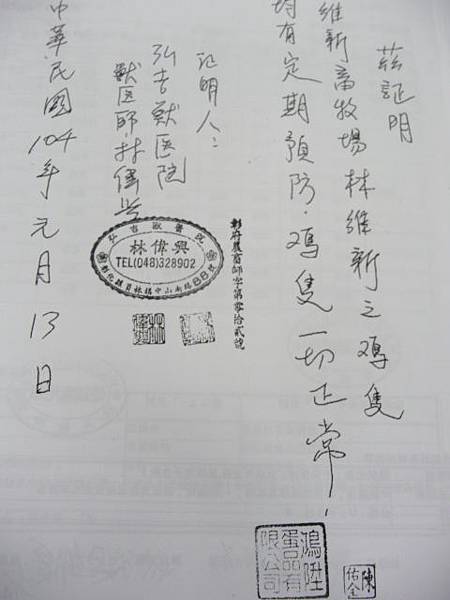 茲証明
維新畜牧場林維新之鸡隻
均有定期預防．鸡隻一切正常！
証明人：
弘吉獸医院
獸医師林偉兴
彰府農畜師字第零拾貳號
弘吉獸醫院
林偉興
TEL(048)328902
中華民國104年元月13日
鴻陞
蛋品有
限公司
陳
佑全